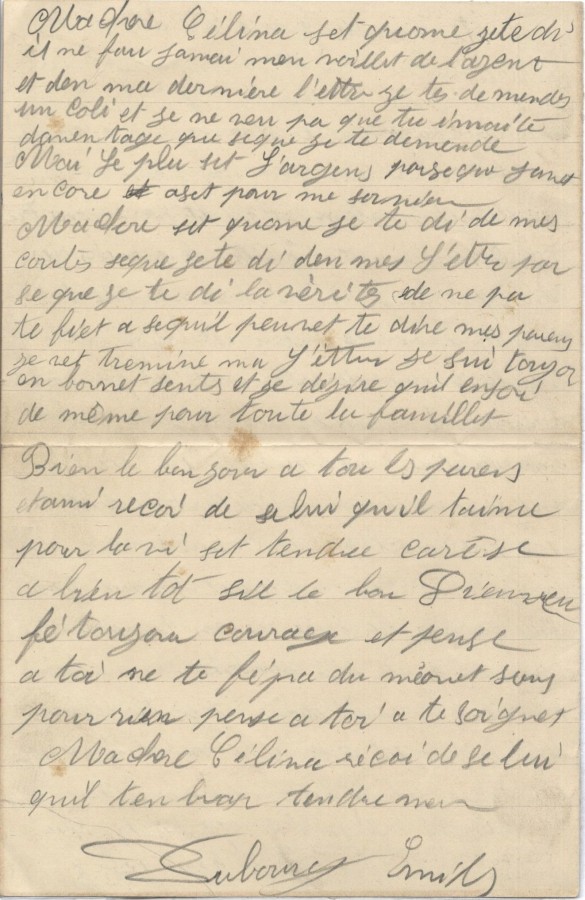 Ma chere Célina set quome ze te di
il ne fau jamai men voillet de l'argent
et den ma derniére l'ettre ze tes demendes
un coli et se ne veu pa que tu
daventage que seque ze te demende
Mai le plu set l'argens parseque
encore aset pour me
Ma chere set quome se te di de mes
contes seque ze te di den mes l'ettre par
se que ze te di la véritès de ne pa
te fiet a sequil peuvet te dire mes parens
ze ret tremine ma l'ettre se sui touzor
en bonnet sentes et se désire quil en soi
de même pour toute la famillet
Bien le bonzour a tou les parens
et ami recoi de selui quil taime
pour la vi set tendre carèse
a bien tot si le bon Dieu veu
fé touzour courage et pense
a toi ne te fé pa du méonet sens
pour rien pense a toi a te soignet
Ma chere Célina récoi de selui
quil ten bras tendremen
Dubource Emile